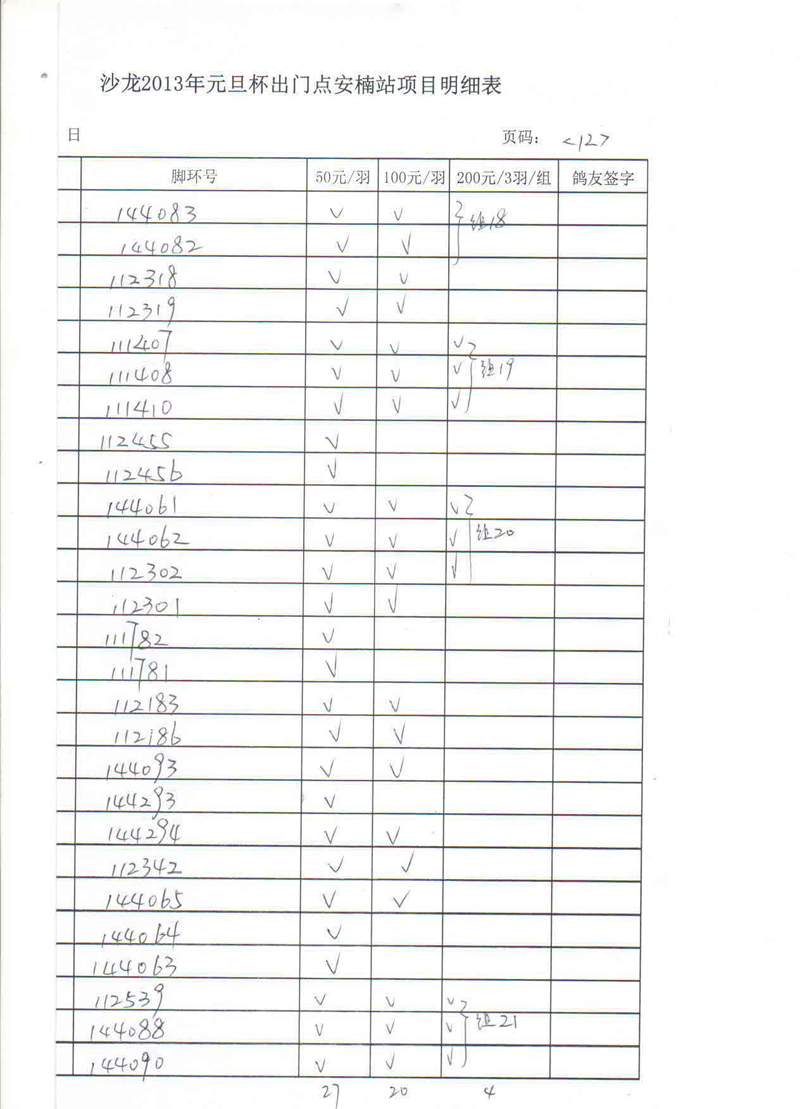 沙龙2013年元旦杯出门点安楠站项目明细表
日 页码： <12>
脚环号 50元/羽 100元/羽 200元/3羽/组 鸽友签字
144083 ✓ ✓ 组18
144082 ✓ ✓
112318 ✓ ✓
112319 ✓ ✓
111407 ✓ ✓ ✓
111408 ✓ ✓ ✓ 组19
111410 ✓ ✓ ✓
112455 ✓
112456 ✓
144061 ✓ ✓ ✓
144062 ✓ ✓ ✓ 组20
112302 ✓ ✓ ✓
112301 ✓ ✓
111782 ✓
111781 ✓
112183 ✓ ✓
112186 ✓ ✓
144093 ✓ ✓
144293 ✓
144294 ✓ ✓
112342 ✓ ✓
144065 ✓ ✓
144064 ✓
144063 ✓
112539 ✓ ✓ ✓
144088 ✓ ✓ ✓ 组21
144090 ✓ ✓ ✓
27 20 4